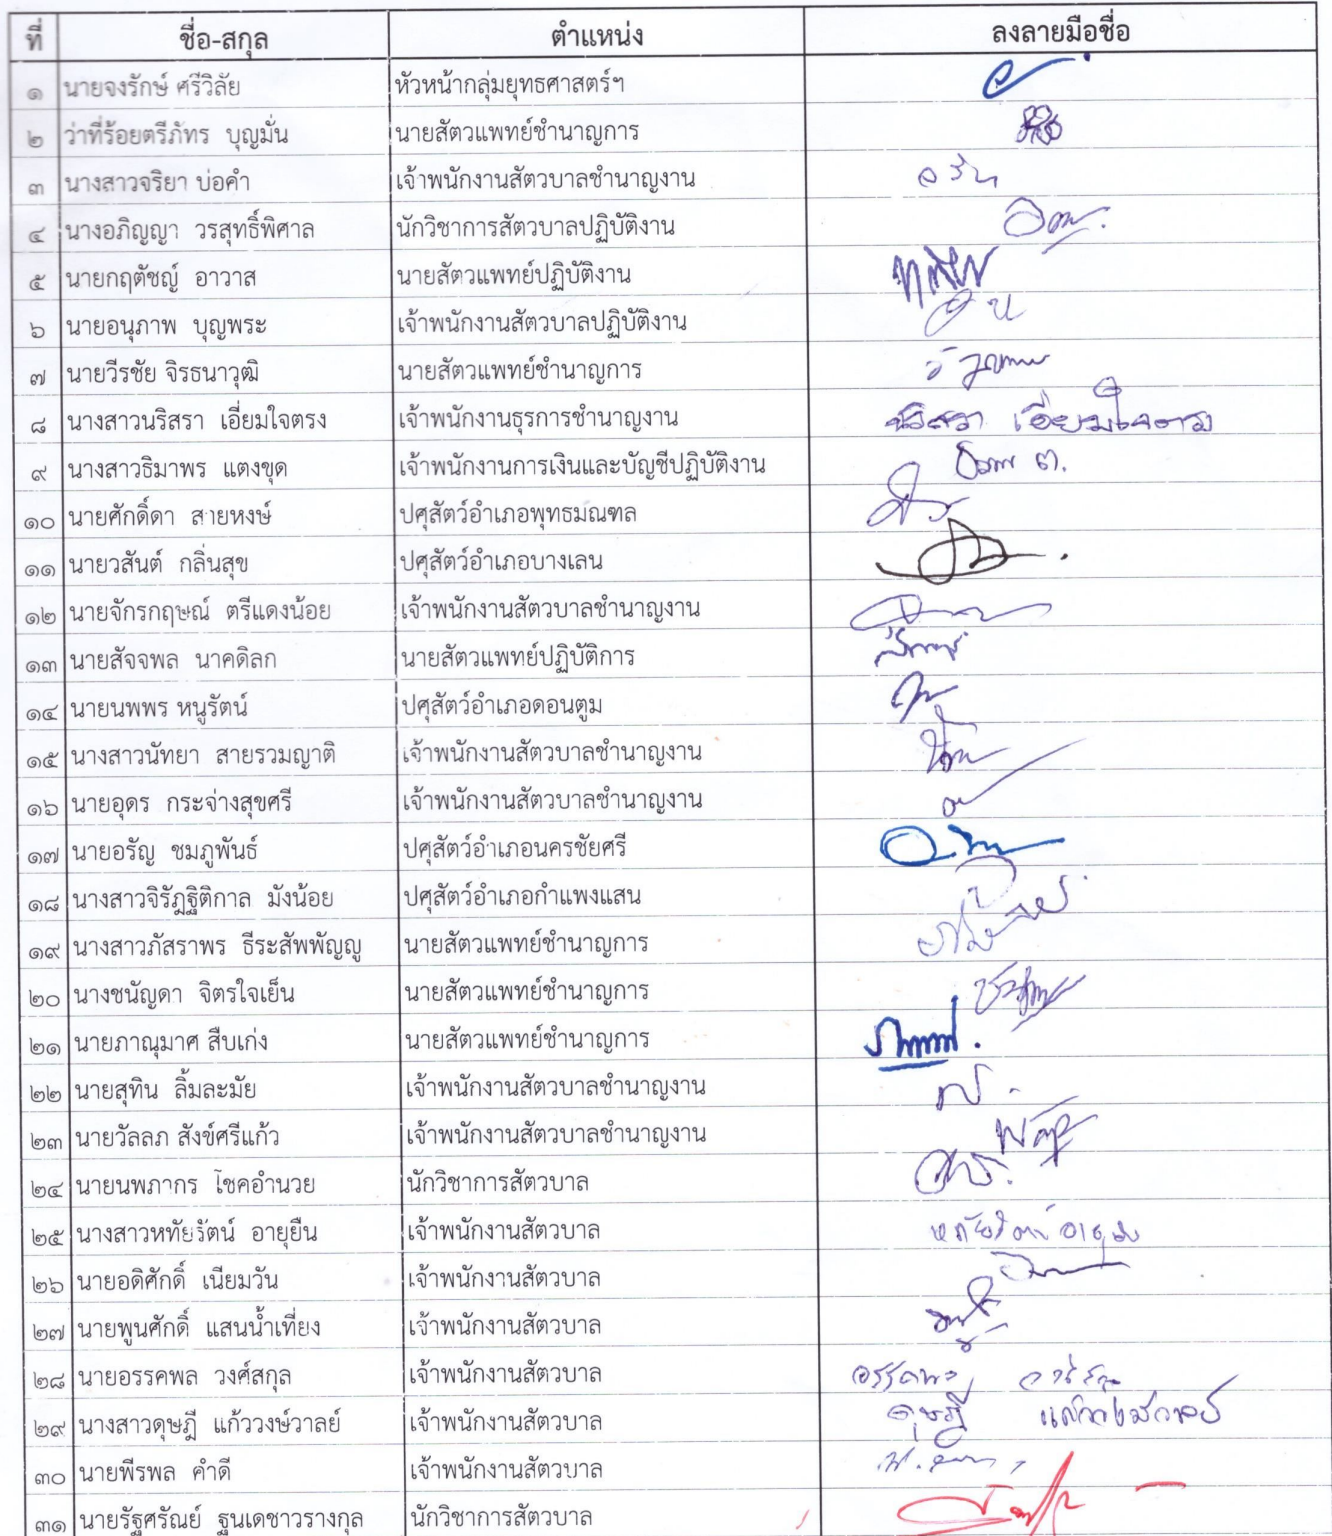 ที่ ชื่อ-สกุล ตำแหน่ง ลงลายมือชื่อ
๑ นายจงรักษ์ ศรีวิลัย หัวหน้ากลุ่มยุทธศาสตร์ฯ
๒ ว่าที่ร้อยตรีภัทร บุญมั่น นายสัตวแพทย์ชำนาญการ
๓ นางสาวจริยา บ่อคำ เจ้าพนักงานสัตวบาลชำนาญงาน
๔ นางอภิญญา วรสุทธิ์พิศาล นักวิชาการสัตวบาลปฏิบัติงาน
๕ นายกฤตัชญ์ อาวาส นายสัตวแพทย์ปฏิบัติงาน
๖ นายอนุภาพ บุญพระ เจ้าพนักงานสัตวบาลปฏิบัติงาน
๗ นายวีรชัย จิรธนาวุฒิ นายสัตวแพทย์ชำนาญการ
๘ นางสาวนริสรา เอี่ยมใจตรง เจ้าพนักงานธุรการชำนาญงาน นริสรา เอี่ยมใจตรง
๙ นางสาวธิมาพร แตงขุด เจ้าพนักงานการเงินและบัญชีปฏิบัติงาน
๑๐ นายศักดิ์ดา สายหงษ์ ปศุสัตว์อำเภอพุทธมณฑล
๑๑ นายวสันต์ กลิ่นสุข ปศุสัตว์อำเภอบางเลน
๑๒ นายจักรกฤษณ์ ตรีแดงน้อย เจ้าพนักงานสัตวบาลชำนาญงาน
๑๓ นายสัจจพล นาคดิลก นายสัตวแพทย์ปฏิบัติการ
๑๔ นายนพพร หนูรัตน์ ปศุสัตว์อำเภอดอนตูม
๑๕ นางสาวนัทยา สายรวมญาติ เจ้าพนักงานสัตวบาลชำนาญงาน
๑๖ นายอุดร กระจ่างสุขศรี เจ้าพนักงานสัตวบาลชำนาญงาน
๑๗ นายอรัญ ชมภูพันธ์ ปศุสัตว์อำเภอนครชัยศรี
๑๘ นางสาวจิรัฏฐิติกาล มังน้อย ปศุสัตว์อำเภอกำแพงแสน
๑๙ นางสาวภัสราพร ธีระสัพพัญญู นายสัตวแพทย์ชำนาญการ
๒๐ นางชนัญดา จิตรใจเย็น นายสัตวแพทย์ชำนาญการ
๒๑ นายภาณุมาศ สืบเก่ง นายสัตวแพทย์ชำนาญการ
๒๒ นายสุทิน ลิ้มละมัย เจ้าพนักงานสัตวบาลชำนาญงาน
๒๓ นายวัลลภ สังข์ศรีแก้ว เจ้าพนักงานสัตวบาลชำนาญงาน
๒๔ นายนพภากร โชคอำนวย นักวิชาการสัตวบาล
๒๕ นางสาวหทัยรัตน์ อายุยืน เจ้าพนักงานสัตวบาล
๒๖ นายอดิศักดิ์ เนียมวัน เจ้าพนักงานสัตวบาล
๒๗ นายพูนศักดิ์ แสนน้ำเที่ยง เจ้าพนักงานสัตวบาล
๒๘ นายอรรคพล วงศ์สกุล เจ้าพนักงานสัตวบาล อรรคพล
๒๙ นางสาวดุษฎี แก้ววงษ์วาลย์ เจ้าพนักงานสัตวบาล ดุษฎี แก้ววงษ์วาลย์
๓๐ นายพีรพล คำดี เจ้าพนักงานสัตวบาล
๓๑ นายรัฐศรัณย์ ฐนเดชาวรางกุล นักวิชาการสัตวบาล